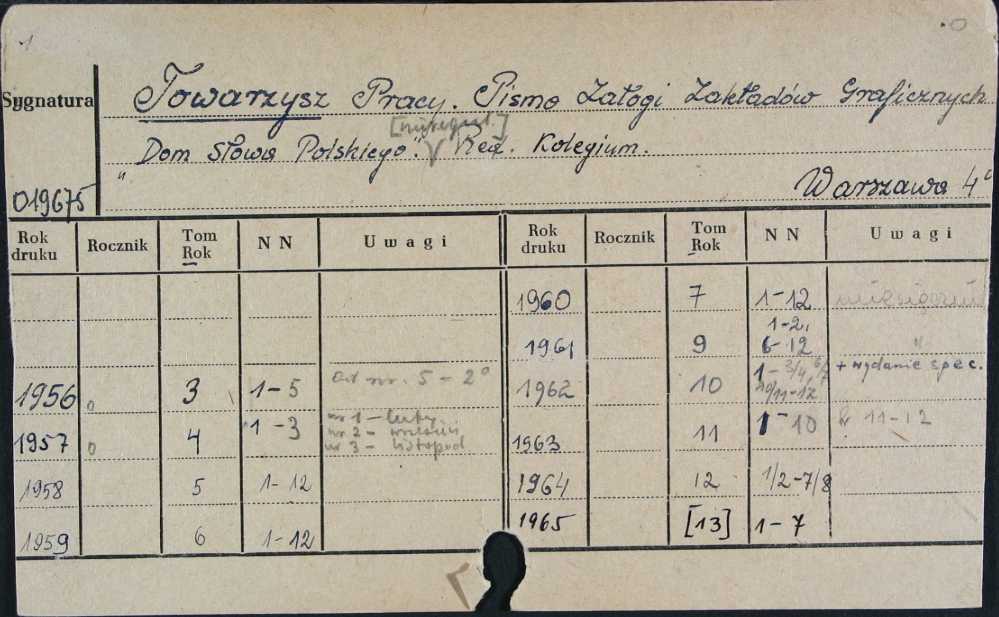 1
0
Sygnatura
Towarzysz Pracy. Pismo Załogi Zakładów Graficznych
[nieregul.]
„Dom Słowa Polskiego". Red. Kolegium.
019675
Warszawa 4°
Rok druku Rocznik Tom Rok NN Uwagi Rok druku Rocznik Tom Rok NN Uwagi
1960 7 1-12 miesięcznik
1961 9 1-2, 6-12 "
1956 0 3 1-5 Od nr. 5 - 2° 1962 10 1-3/4, 6/7 10/11-12 + wydanie spec.
1957 0 4 1-3 nr 1 - luty nr 2 - wrzesień nr 3 - listopad 1963 11 1-10 11-12
1958 5 1-12 1964 12 1/2-7/8
1959 6 1-12 1965 [13] 1-7